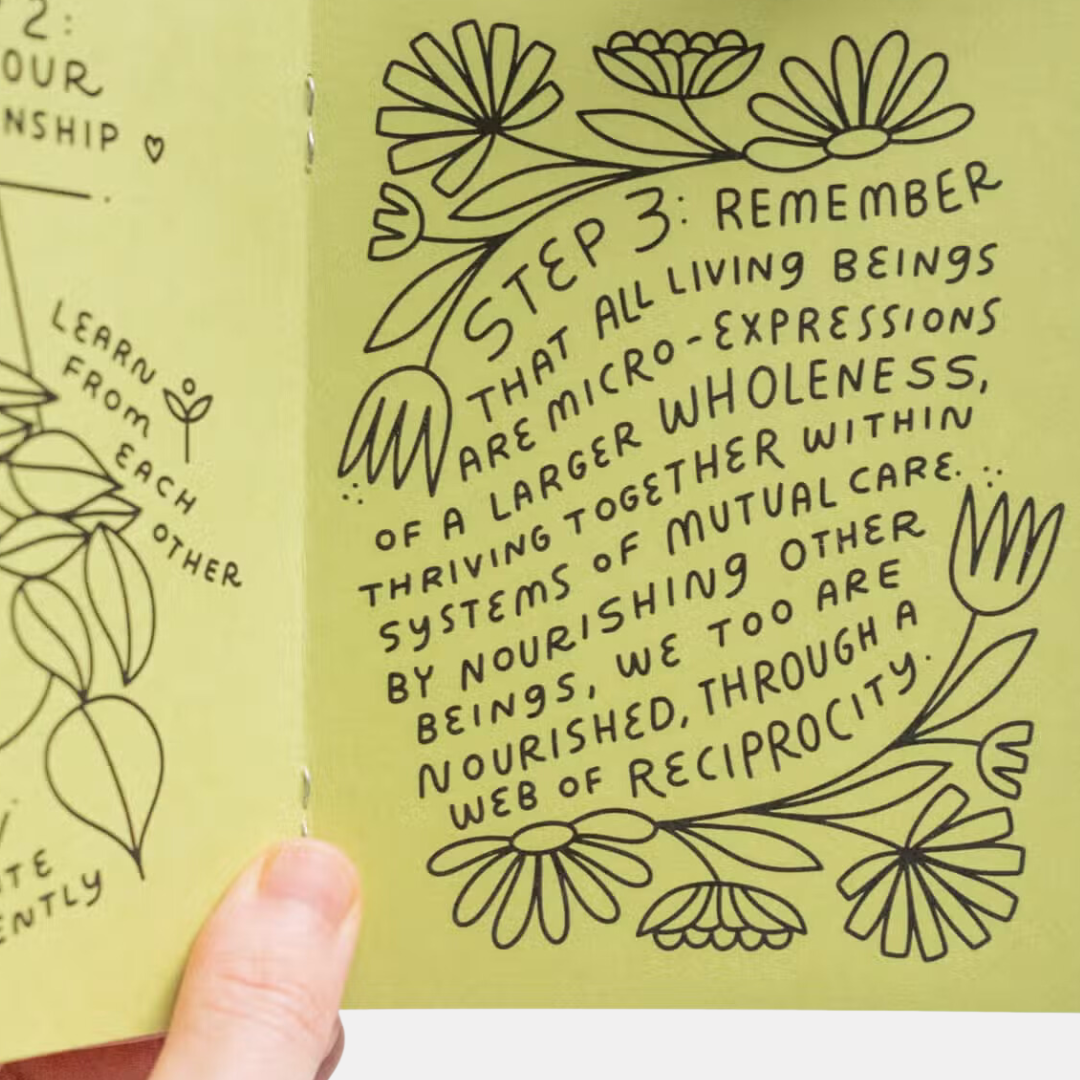 2:
OUR
NSHIP
LEARN
FROM
EACH
OTHER
TE
ENTLY
STEP 3: REMEMBER
THAT ALL LIVING BEINGS
ARE MICRO-EXPRESSIONS
OF A LARGER WHOLENESS,
THRIVING TOGETHER WITHIN
SYSTEMS OF MUTUAL CARE.
BY NOURISHING OTHER
BEINGS, WE TOO ARE
NOURISHED, THROUGH A
WEB OF RECIPROCITY.